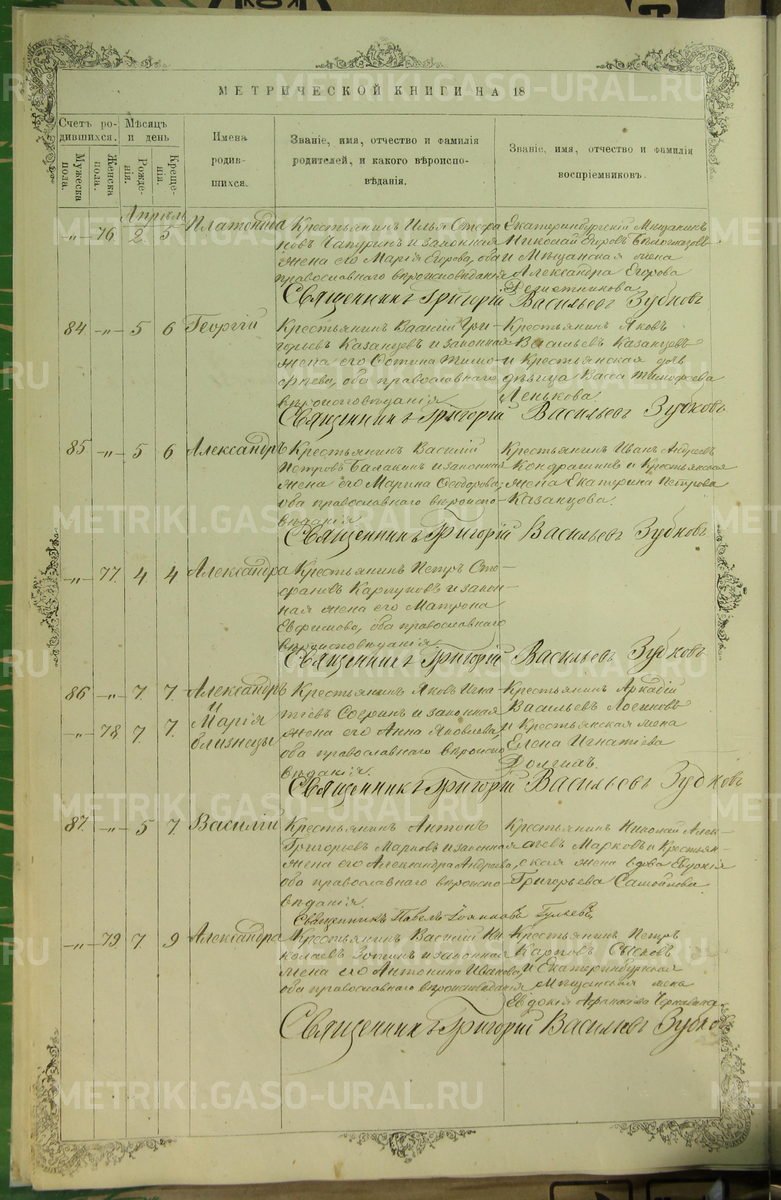 МЕТРИЧЕСКОЙ КНИГИ НА 18
Счетъ ро-
дившихся.
Мужеска
пола.
Женска
пола.
Мѣсяцъ
и день
Рожде-
нія.
Креще-
нія.
Имена
родив-
шихся.
Званіе, имя, отчество и фамилія
родителей, и какого вѣроиспо-
вѣданія.
Званіе, имя, отчество и фамилія
воспріемниковъ.
Апрель
„ 76 2 5 Платонида
Крестьянинъ Илья Стефа
новъ Чапуринъ и законная
жена его Марія Егорова, оба
православнаго вѣроисповѣданія
Екатеринбургскій Мѣщанинъ
Николай Егоровъ
и Мѣщанская жена
Александра Егорова
Священникъ Григорій Васильевъ Зубковъ
84 „ 5 6 Георгій
Крестьянинъ Василій Гри-
горьевъ Казанцевъ и законная
жена его Тимо-
феева, оба православнаго
вѣроисповѣданія
Крестьянинъ Яковъ
Васильевъ Казанцевъ
и Крестьянская дѣ
вѣица Васса Тимофеева
Ленькова.
Священникъ Григорій Васильевъ Зубковъ
85 „ 5 6 Александръ
Крестьянинъ Василій
Петровъ Балакинъ и законная
жена его Марина Феодорова,
оба православнаго вѣроиспо-
вѣданія
Крестьянинъ Иванъ Андреевъ
Кондрашинъ и Крестьянская
жена Екатерина Петрова
Казанцова.
Священникъ Григорій Васильевъ Зубковъ
„ 77 4 4 Александра
Крестьянинъ Петръ Сте-
фановъ и закон-
ная жена его Матрона
Евфимова, оба православнаго
вѣроисповѣданія
Священникъ Григорій Васильевъ Зубковъ
86 „ 7 7 Александръ
и
„ 78 7 7 Марія
близнецы
Крестьянинъ Яковъ Игна-
тіевъ и законная
жена его Анна Яковлева,
оба православнаго вѣроиспо
вѣданія.
Крестьянинъ Аркадій
Васильевъ
и Крестьянская жена
Елена Игнатіева
Священникъ Григорій Васильевъ Зубковъ
87 „ 5 7 Василій
Крестьянинъ Антонъ
Григорьевъ Марковъ и законная
жена его Александра Андреева,
оба православнаго вѣроиспо-
вѣданія.
Крестьянинъ Николай Алек-
сѣевъ Марковъ и Крестьян-
ская жена вдова Евдокія
Григорьева Самойлова.
Священникъ Павелъ Іоанновъ
„ 79 7 9 Александра
Крестьянинъ Василій Ни
колаевъ и законная
жена его Антонина Иванова,
оба православнаго вѣроисповѣданія
Крестьянинъ Петръ
Карповъ Сысковъ
и Екатеринбургская
Мѣщанская жена
Евдокія
Священникъ Григорій Васильевъ Зубко
METRIKI.GASO-URAL.RU